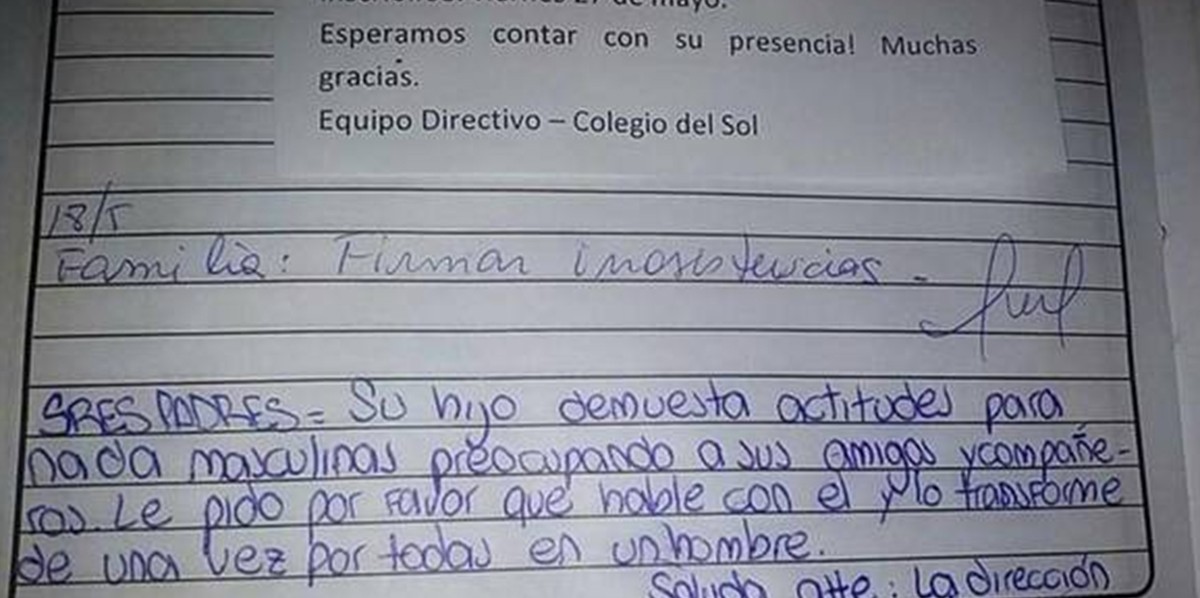 Esperamos contar con su presencia! Muchas
gracias.
Equipo Directivo – Colegio del Sol
18/5
Familia: Firmar inasistencias.-
SRES PADRES = Su hijo demuesta actitudes para
nada masculinas preocupando a sus amigas y compañe-
ras. Le pido por favor que hable con el y lo transforme
de una vez por todas en un hombre.
Saluda atte: La dirección